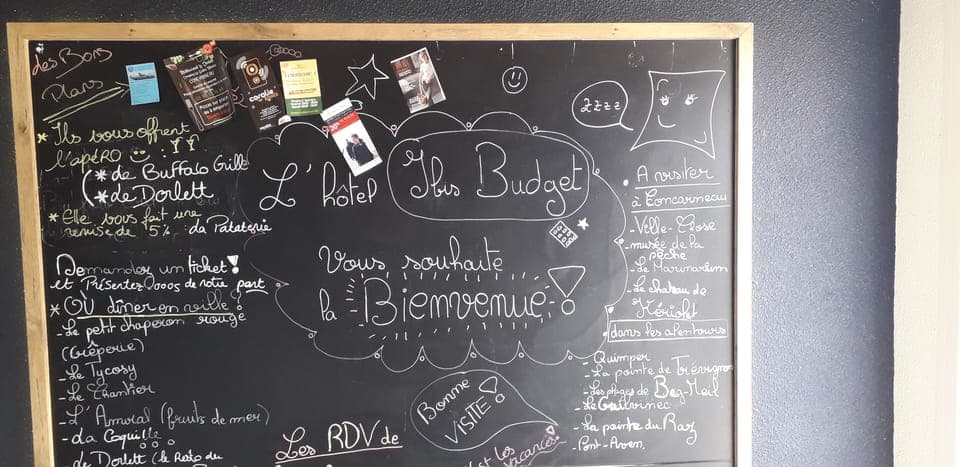 des Bons
Plans
* Ils vous offrent
l'apéro :
(* de Buffalo Grill
* de Dorlett
* Elle vous fait une
remise de 15% la Pataterie
Demander un ticket!
et Présentez vous de notre part
* OÙ dîner en ville :
- Le petit chaperon rouge
(Crêperie)
- Le Tycosy
- Le Chantier
- L'Amiral (fruits de mer)
- La Coquille
- Le Dorlett (le Resto du
L'hôtel Ibis Budget
Vous souhaite
la Bienvenue!
Bonne
VISITE!
Les RDV de
vacances!
zzzz
• A visiter
à Concarneau
- Ville-Close
- musée de la
pêche
- Le Marinarium
- Le chateau de
Kériolet
dans les alentours
- Quimper
- La pointe de Trévignon
- Les plages de Beg-Meil
- Le Guilvinec
- La pointe du Raz
- Pont-Aven.